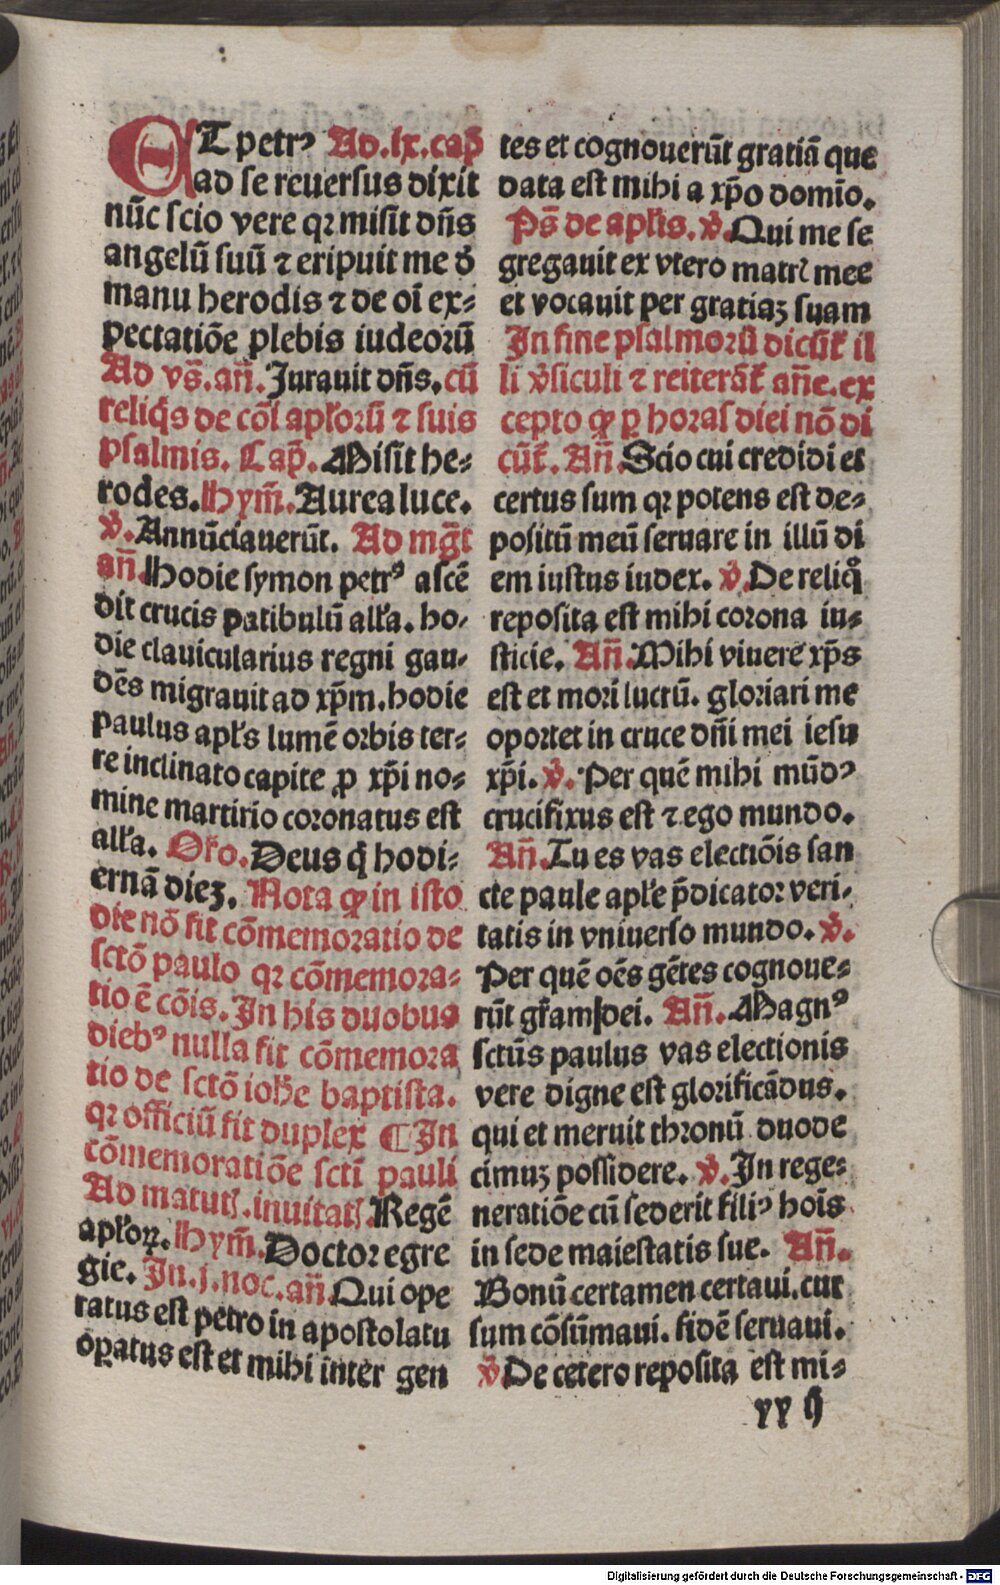 ET petrꝰ Ad .lx. cap̄
ad se reuersus dixit
nūc scio vere qꝛ misit dn̄s
angelū suū ⁊ eripuit me d̄
manu herodis ⁊ de oī ex⸗
pectatiōe plebis iudeoꝛū
Ad vs̄. an̄. Jurauit dn̄s. cū
reliq̄s de cōi apl'oꝛū ⁊ suis
psalmis. Cap̄. Misit he⸗
rodes. Hym̄. Aurea luce.
v̄. Annūciauerūt. Ad mḡt
an̄. Hodie symon petrꝰ ascē
dit crucis patibulū all'a. ho⸗
die clauicularius regni gau⸗
dēs migrauit ad xp̄m. hodie
paulus apl's lumē orbis ter⸗
re inclinato capite ꝓ xp̄i no⸗
mine martirio coronatus est
all'a. Oro. Deus q̄ hodi⸗
ernā dieꝫ. Nota ꝙ in isto
die nō fit cōmemoratio de
sctō paulo qꝛ cōmemora⸗
tio ē cōis. In his duobus
diebꝰ nulla fit cōmemora
tio de sctō ioh̄e baptista.
qꝛ officiū fit duplex ¶ In
cōmemoratiōe scti pauli
Ad matut. inuitat. Regē
apl'oꝝ. Hym̄. Doctoꝛ egre
gie. In .j. noc. an̄ Qui ope
ratus est petro in apostolatu
oꝑatus est et mihi inter gen
tes et cognouerūt gratiā que
data est mihi a xp̄o domīo.
Ps̄ de apl'is. v̄. Qui me se
gregauit ex vtero matrꝭ mee
et vocauit per gratiaꝫ suam
In fine psalmoꝛū dicūt' il
li v̄siculi ⁊ reiterāt' an̄e. ex
cepto ꝙ ꝑ horas diei nō di
cūt'. An̄. Scio cui credidi et
certus sum qꝛ potens est de⸗
positū meū seruare in illū di
em iustus iudex. v̄. De reliq̊
reposita est mihi coꝛona iu⸗
sticie. An̄. Mihi viuere xp̄s
est et moꝛi lucrū. gloriari me
opoꝛtet in cruce dn̄i mei iesu
xp̄i. v̄. Per quē mihi mūdꝰ
crucifixus est ⁊ ego mundo.
An̄. Tu es vas electiōis san
cte paule apl'e p̄dicatoꝛ veri⸗
tatis in vniuerso mundo. v̄.
Per quē oēs gētes cognoue⸗
rūt gr̄am dei. An̄. Magnꝰ
sctūs paulus vas electionis
vere digne est gloꝛificādus.
qui et meruit thꝛonū duode
cimuꝫ possidere. v̄. In rege⸗
neratiōe cū sederit filiꝰ hoīs
in sede maiestatis sue. An̄.
Bonū certamen certaui. cur
sum cōsūmaui. fidē seruaui.
v̄ De cetero reposita est mi⸗
yy ij
Digitalisierung gefördert durch die Deutsche Forschungsgemeinschaft - DFG